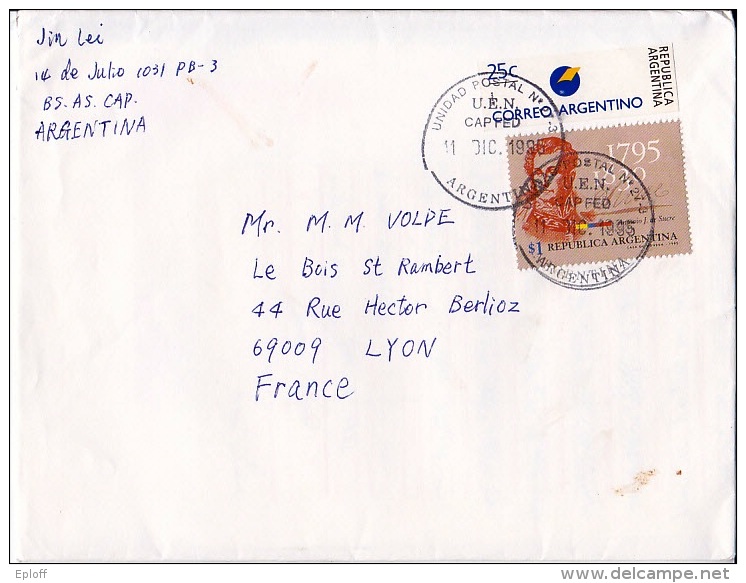 Jin Lei
14 de Julio 1031 PB-3
BS.AS. CAP.
ARGENTINA
25c
CORREO ARGENTINO
REPUBLICA
ARGENTINA
UNIDAD POSTAL Nº 27-3
U.E.N.
CAP FED
11 DIC. 1995
ARGENTINA
1795
$1 REPUBLICA ARGENTINA
Antonio J. de Sucre
UNIDAD POSTAL Nº 27-3
U.E.N.
CAP FED
11 DIC. 1995
ARGENTINA
Mr. M. M. VOLPE
Le Bois St Rambert
44 Rue Hector Berlioz
69009 LYON
France
Eploff
delcampe.net